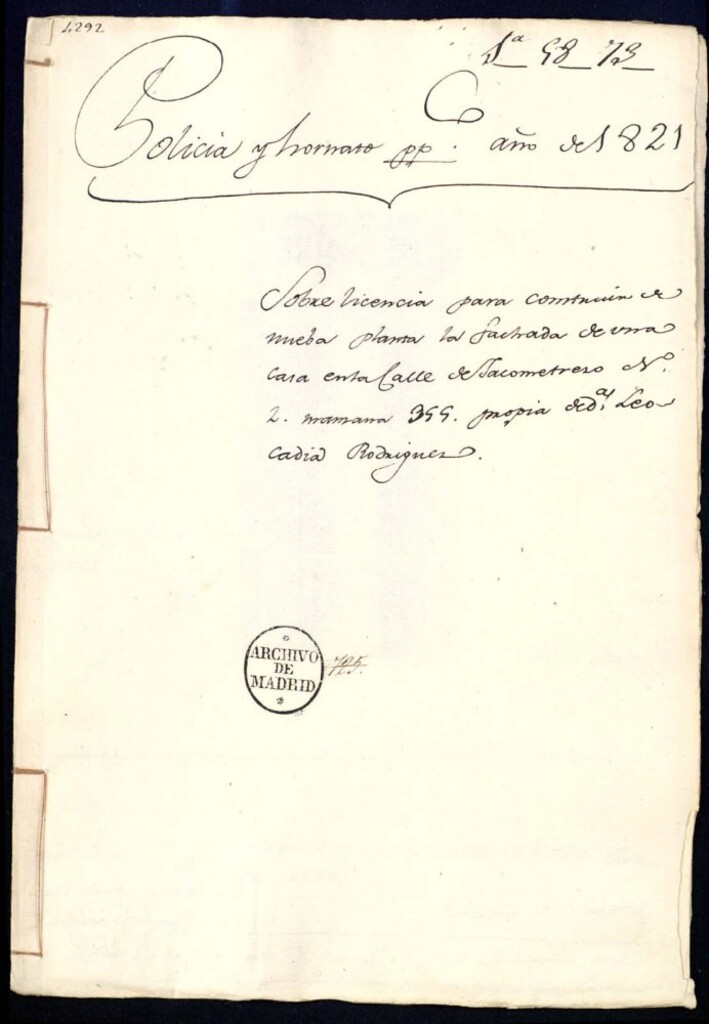 4292
1ª 58_73_
Policia y hornato pp. año de 1821
Sobre licencia para construir de
nueba planta la fachada de una
casa enla Calle de Jacometrezo N.º
2. manzana 355. propia de d.ª Leo-
cadia Rodriguez.
ARCHIVO
DE
MADRID